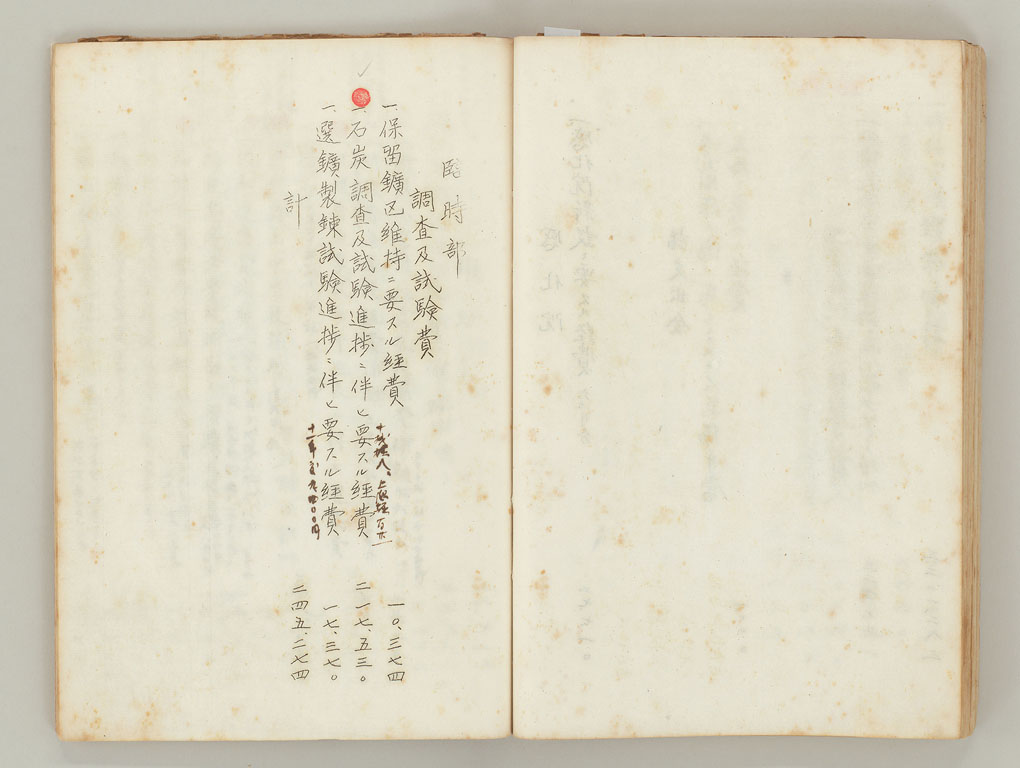 臨時部
調査及試験費
一、保留鑛区維持ニ要スル経費 一〇、三七四
一、石炭調査及試験進捗ニ伴ヒ要スル経費 二一七、五三〇
一、選鑛製錬試験進捗ニ伴ヒ要スル経費 一七、三七〇
十一年度九四〇〇円
計 二四五、二七四